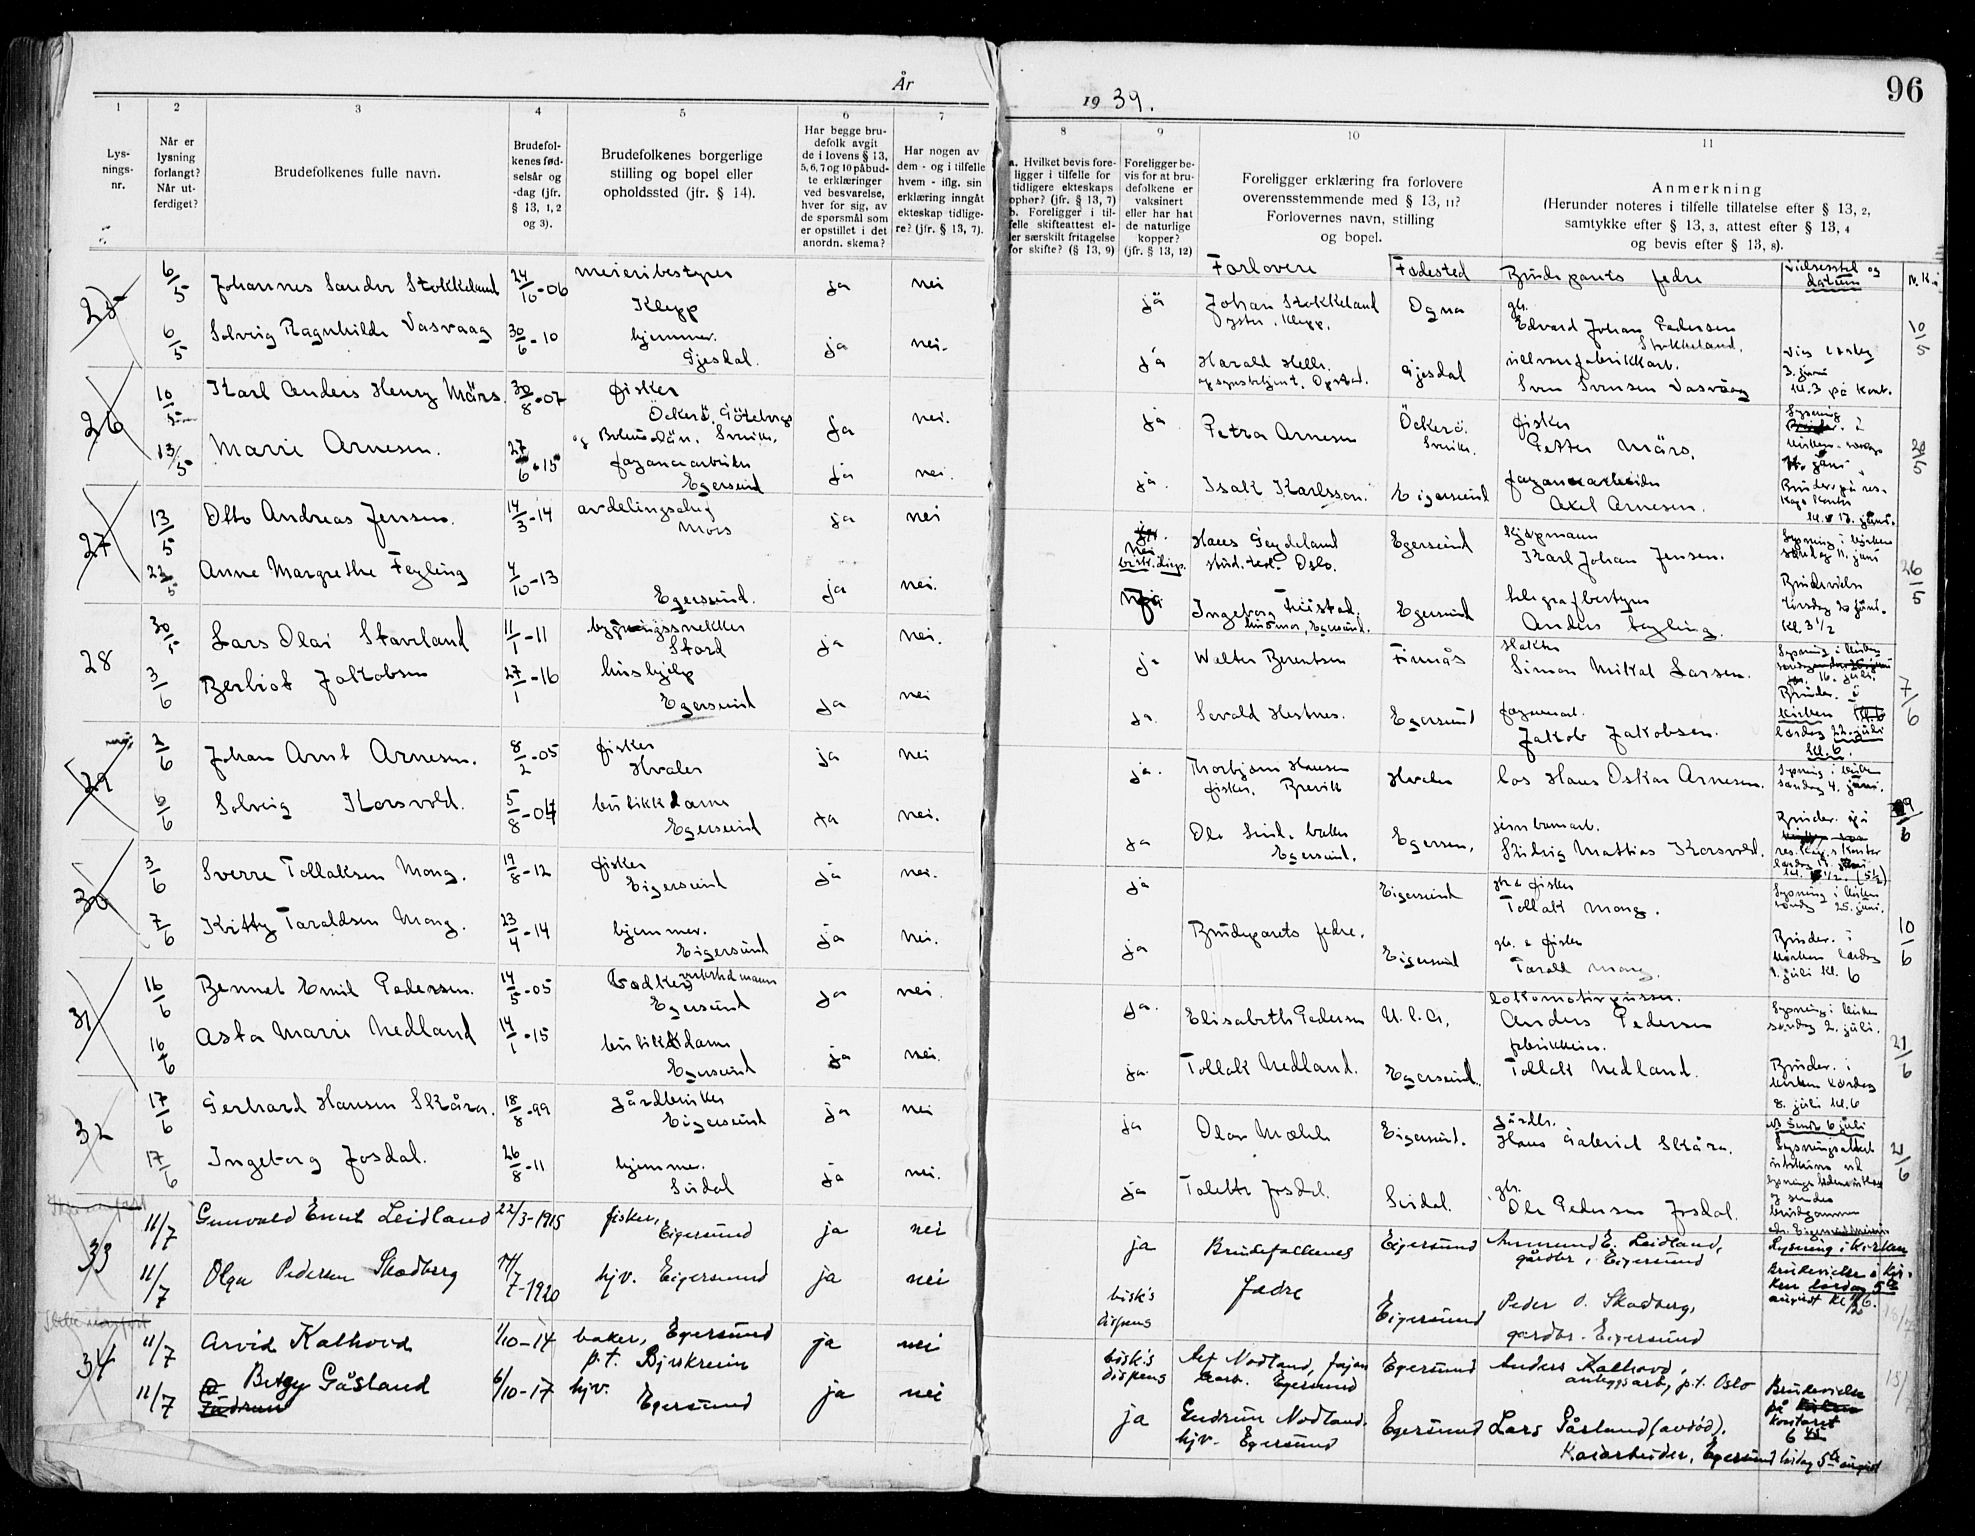 År
1939.
96
1
2
3
4
5
6
7
8
9
10
11
Lys-
nings-
nr.
Når er
lysning
forlangt?
Når ut-
ferdiget?
Brudefolkenes fulle navn.
Brudefol-
kenes fød-
selsår og
-dag (jfr.
§ 13, 1, 2
og 3).
Brudefolkenes borgerlige
stilling og bopel eller
opholdssted (jfr. § 14).
Har begge bru-
defolk avgit
de i lovens § 13,
5, 6, 7 og 10 påbud-
te erklæringer
ved besvarelse,
hver for sig, av
de spørsmål som
er opstillet i det
anordn. skema?
Har nogen av
dem - og i tilfelle
hvem - iflg. sin
erklæring inngåt
ekteskap tidlige-
re? (jfr. § 13, 7).
a. Hvilket bevis fore-
ligger i tilfelle for
tidligere ekteskaps
ophør? (jfr. § 13, 7)
b. Foreligger i til-
felle skifteattest el-
ler særskilt fritagelse
for skifte? (§ 13, 9)
Foreligger be-
vis for at bru-
defolkene er
vaksinert
eller har hat
de naturlige
kopper?
(jfr. § 13, 12)
Foreligger erklæring fra forlovere
overensstemmende med § 13, 11?
Forlovernes navn, stilling
og bopel.
Anmerkning
(Herunder noteres i tilfelle tillatelse efter § 13, 2,
samtykke efter § 13, 3, attest efter § 13, 4
og bevis efter § 13, 8).
Forlovere Fødested Brudeparets fedre Vielsessted og
datum
25 6/5 Johannes Sander Stokkeland 24/10-06 meieribestyrer
Klepp ja nei
ja Johan Stokkeland Ogna gbr.
Edvard Johan Pedersen
Stokkeland. 10/5
6/5 Solveig Ragnhilde Vasvaag 30/6-10 hjemmev.
Gjesdal. ja nei.
ja Harald Helle Gjesdal ullvarefabrikkarb.
Sven Svensen Vasvåag
3. juni
kl. 3 på kont.
26 10/5 Karl Anders Henry Mårs. 30/8-07 fisker
Öckerö, Göteborgs
og Bohuslän. Sverike. ja nei.
ja Petra Arnesen Öckerö.
Sverike. fisker
Petter Mårs.
13/5 Marie Arnesen. 27/6-15 fayancearbeider
Egersund ja nei.
ja. Isak Karlsson. Eigersund fayancearbeider
Axel Arnesen.
27 13/5 Otto Andreas Jensen. 14/3-14 avdelingssjef
Mors ja nei
Nei
bisk. disp. Hans Geydeland
stud. teol. Oslo. Egersund Kjøpmann
Karl Johan Jensen.
Lysning i kirken
søndag 11. juni 26/5
22/5 Anne Margrethe Feyling 4/10-13
Egersund. ja nei.
Ingeborg Tiistad.
husmor, Egersund. Egersund telegrafbestyrer
Anders Feyling.
Brudevielse
torsdag
kl. 3 1/2
28 30/5 Lars Olai Staveland 11/1-11 bygningssnekker
Stord ja nei.
ja Walter Berentsen Finnås slakter
Simon Mikal Larsen.
16. juli 7/6
3/6 Berliot Jakobsen 27/1-16 hushjelp
Egersund ja nei
ja. Sevald Hestnes. Egersund fayancearb.
Jakob Jakobsen.
Brudev. i
kirken
lørdag 22. juli
kl. 6.
29 2/6 Johan Arnt Arnesen. 8/2-05 fisker
Hvaler ja nei
ja. Thorbjørn Hansen
fisker, Brevik Hvaler los Hans Oskar Arnesen.
Lysning i kirken
søndag 4. juni.
6/6 Solveig Korsvold. 5/8-04 butikkdame
Egersund ja nei.
ja Egersund. Egersun. jernbanearb.
Ludvig Mattias Korsvold.
30 3/6 Sverre Tollaksen Mong. 19/8-12 fisker
Eigersund ja nei.
ja Eigersund gbr & fisker
Tollak Mong.
Lysning i kirken
søndag 25. juni.
7/6 Kitty Taraldsen Mong. 23/4-14 hjemmev.
Eigersund ja nei.
ja Brudeparets fedre. Eigersund gbr. & fisker
Tarald Mong.
Brudev. i
kirken lørdag
1. juli kl. 6 10/6
31 16/6 Bennet Emil Pedersen. 14/5-05
Egersund ja nei.
ja. Elisabeth Pedersen U.S.A. lokomotivpusser.
Anders Pedersen
Lysning i kirken
søndag 2. juli. 21/6
16/6 Asta Marie Nedland 14/1-15 butikkdame
Egersund ja nei.
ja. Tollak Nedland. Egersund. fabrikkeier.
Tollak Nedland.
Brudev. i
kirken lørdag
8. juli kl. 6
32 17/6 Gerhard Hansen Skåra. 18/8-99 gårdbruker
Eigersund ja nei
ja Olav Mæhle Eigersund. gårdbr.
Hans Gabriel Skåra. 21/6
17/6 Ingeborg Josdal. 26/8-11 hjemmev.
Sirdal ja nei.
ja Talette Josdal. Sirdal. gbr.
Ole Pedersen Josdal.
33 11/7 Gunvald Emil Leidland 22/3-1915 fisker,
Eigersund ja nei
ja Brudefolkenes Eigersund Ammund E. Leidland,
gårdbr, Eigersund
Lysning i kirken
11/7 Olga Pedersen Skadberg 7-1920 hjv. Eigersund ja nei
bisk's
dispens fedre Eigersund Peder O. Skadberg,
gardbr. Eigersund
Brudevielse i kir-
ken lørdag 5te
august kl 6.
34 11/7 Arvid Kalhovd 1/10-14 baker, Egersund
p.t. Bjerkreim ja nei
bisk's
dispens Alf Nodland, fajan
Egersund Egersund Anders Kalhovd,
anleggsarb, p.t. Oslo
11/7 Betzy Gåsland 6/10-17 hjv.
Egersund ja nei
ja Gudrun Nodland.
hjv. Egersund Egersund Lars Gåsland (avdød).
Kaiarbeider, Egersund
Brudevielse
på
kontoret
lørdag 5te august